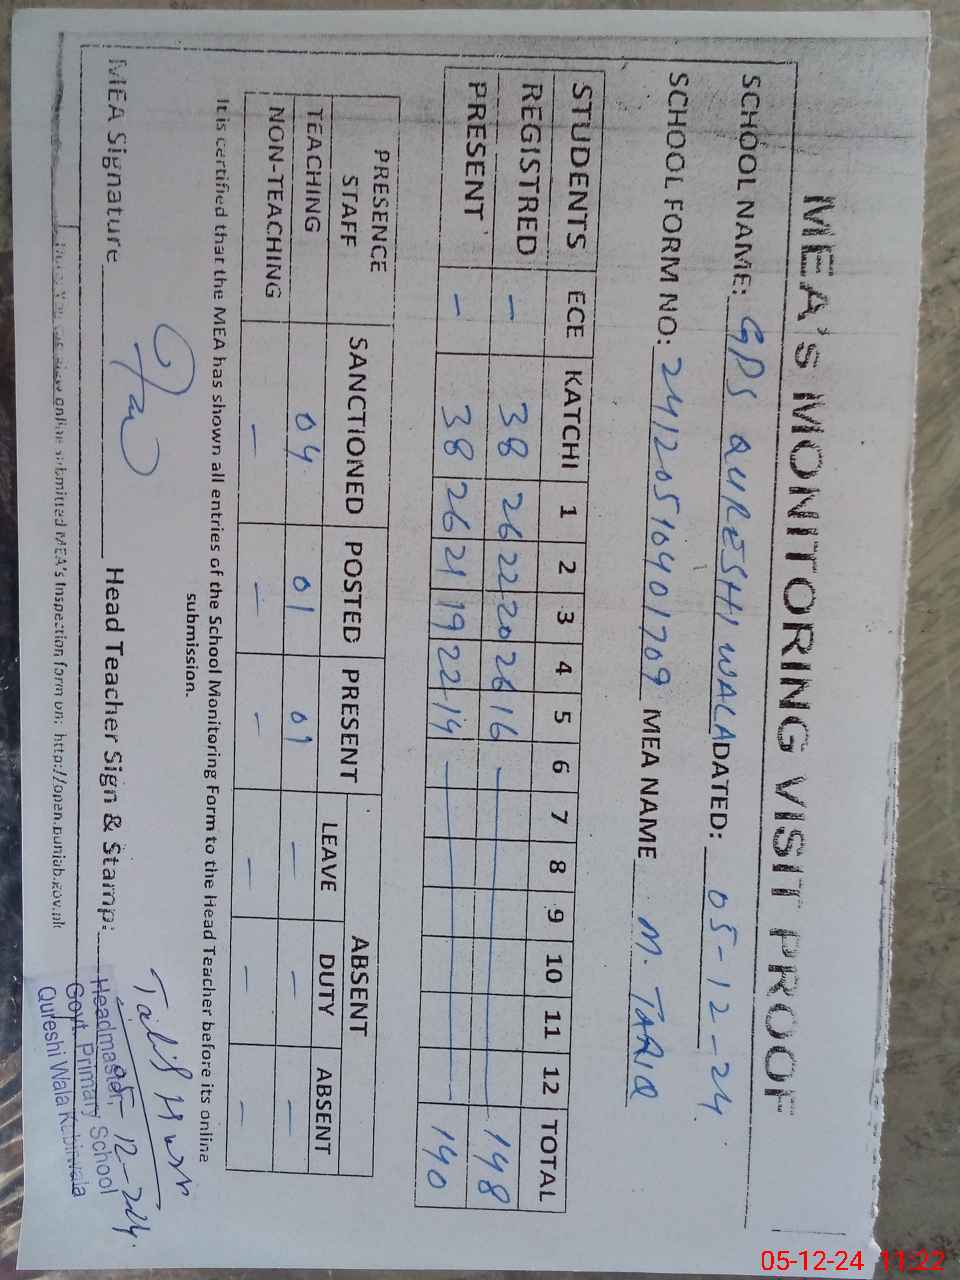 MEA's MONITORING VISIT PROOF
SCHOOL NAME: GPS QURESHI WALA DATED: 05-12-24
SCHOOL FORM NO: 24120510401709 MEA NAME M. TARIQ
STUDENTS ECE KATCHI 1 2 3 4 5 6 7 8 9 10 11 12 TOTAL
REGISTRED - 38 26 22 20 26 16 148
PRESENT - 38 26 21 19 22 14 140
PRESENCE STAFF SANCTIONED POSTED PRESENT ABSENT
LEAVE DUTY ABSENT
TEACHING 04 01 01 - - -
NON-TEACHING - - - - - -
It is certified that the MEA has shown all entries of the School Monitoring Form to the Head Teacher before its online
submission.
MEA Signature Head Teacher Sign & Stamp:
05-12-2024
Headmaster,
Govt. Primary School
Qureshi Wala Kabirwala
You can view online submitted MEA's Inspection form on: http://open.punjab.gov.pk
05-12-24 11:22